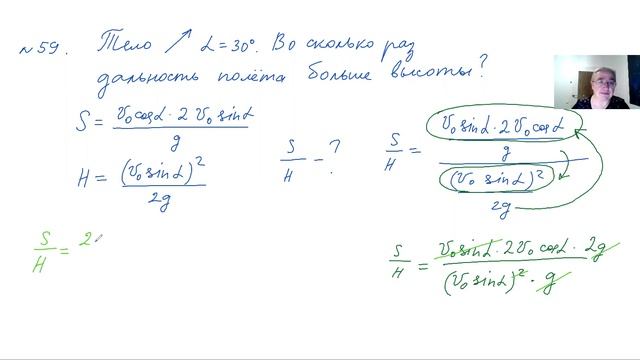 №59. Тело ↗ α = 30°. Во сколько раз
дальность полёта больше высоты?
S = v₀cosα · 2 v₀ sinα / g
H = (v₀ sinα)² / 2g
S/H - ?
S/H = v₀ sinα · 2 v₀ cosα / g / (v₀ sinα)² / 2g
S/H = v₀ sinα · 2 v₀ cosα · 2g / (v₀ sinα)² · g
S/H = 2